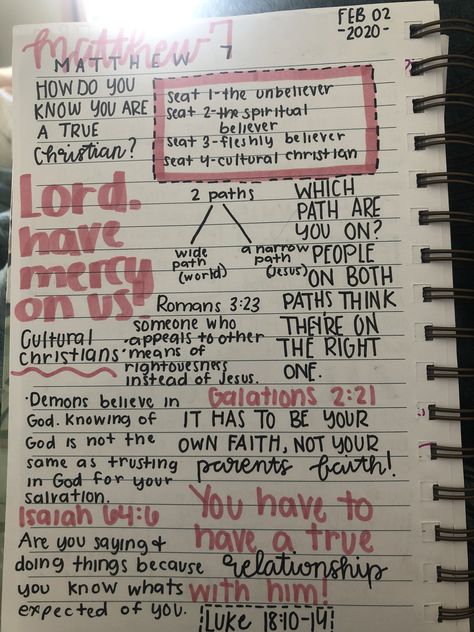 FEB 02
-2020-
Matthew 7
MATTHEW 7
HOW DO YOU
KNOW YOU ARE
A TRUE
Christian?
Seat 1-the unbeliever
Seat 2-the spiritual
believer
Seat 3-fleshly believer
Seat 4-cultural christian
Lord.
have
mercy
on us!
2 paths
wide
path
(world)
a narrow
path
(Jesus)
WHICH
PATH ARE
YOU ON?
PEOPLE
ON BOTH
PATHS THINK
THEIRE ON
THE RIGHT
ONE.
Romans 3:23
Cultural
Christians
someone who
·appeals to other
·means of
rightouesness
instead of Jesus.
·Demons believe in
God. Knowing of
God is not the
same as trusting
in God for your
salvation.
Galations 2:21
IT HAS TO BE YOUR
OWN FAITH, NOT YOUR
parents faith!
Isaiah 64:6
Are you saying +
doing things because
you know whats
expected of you.
You have to
have a true
relationship
with him!
Luke 18:10-14